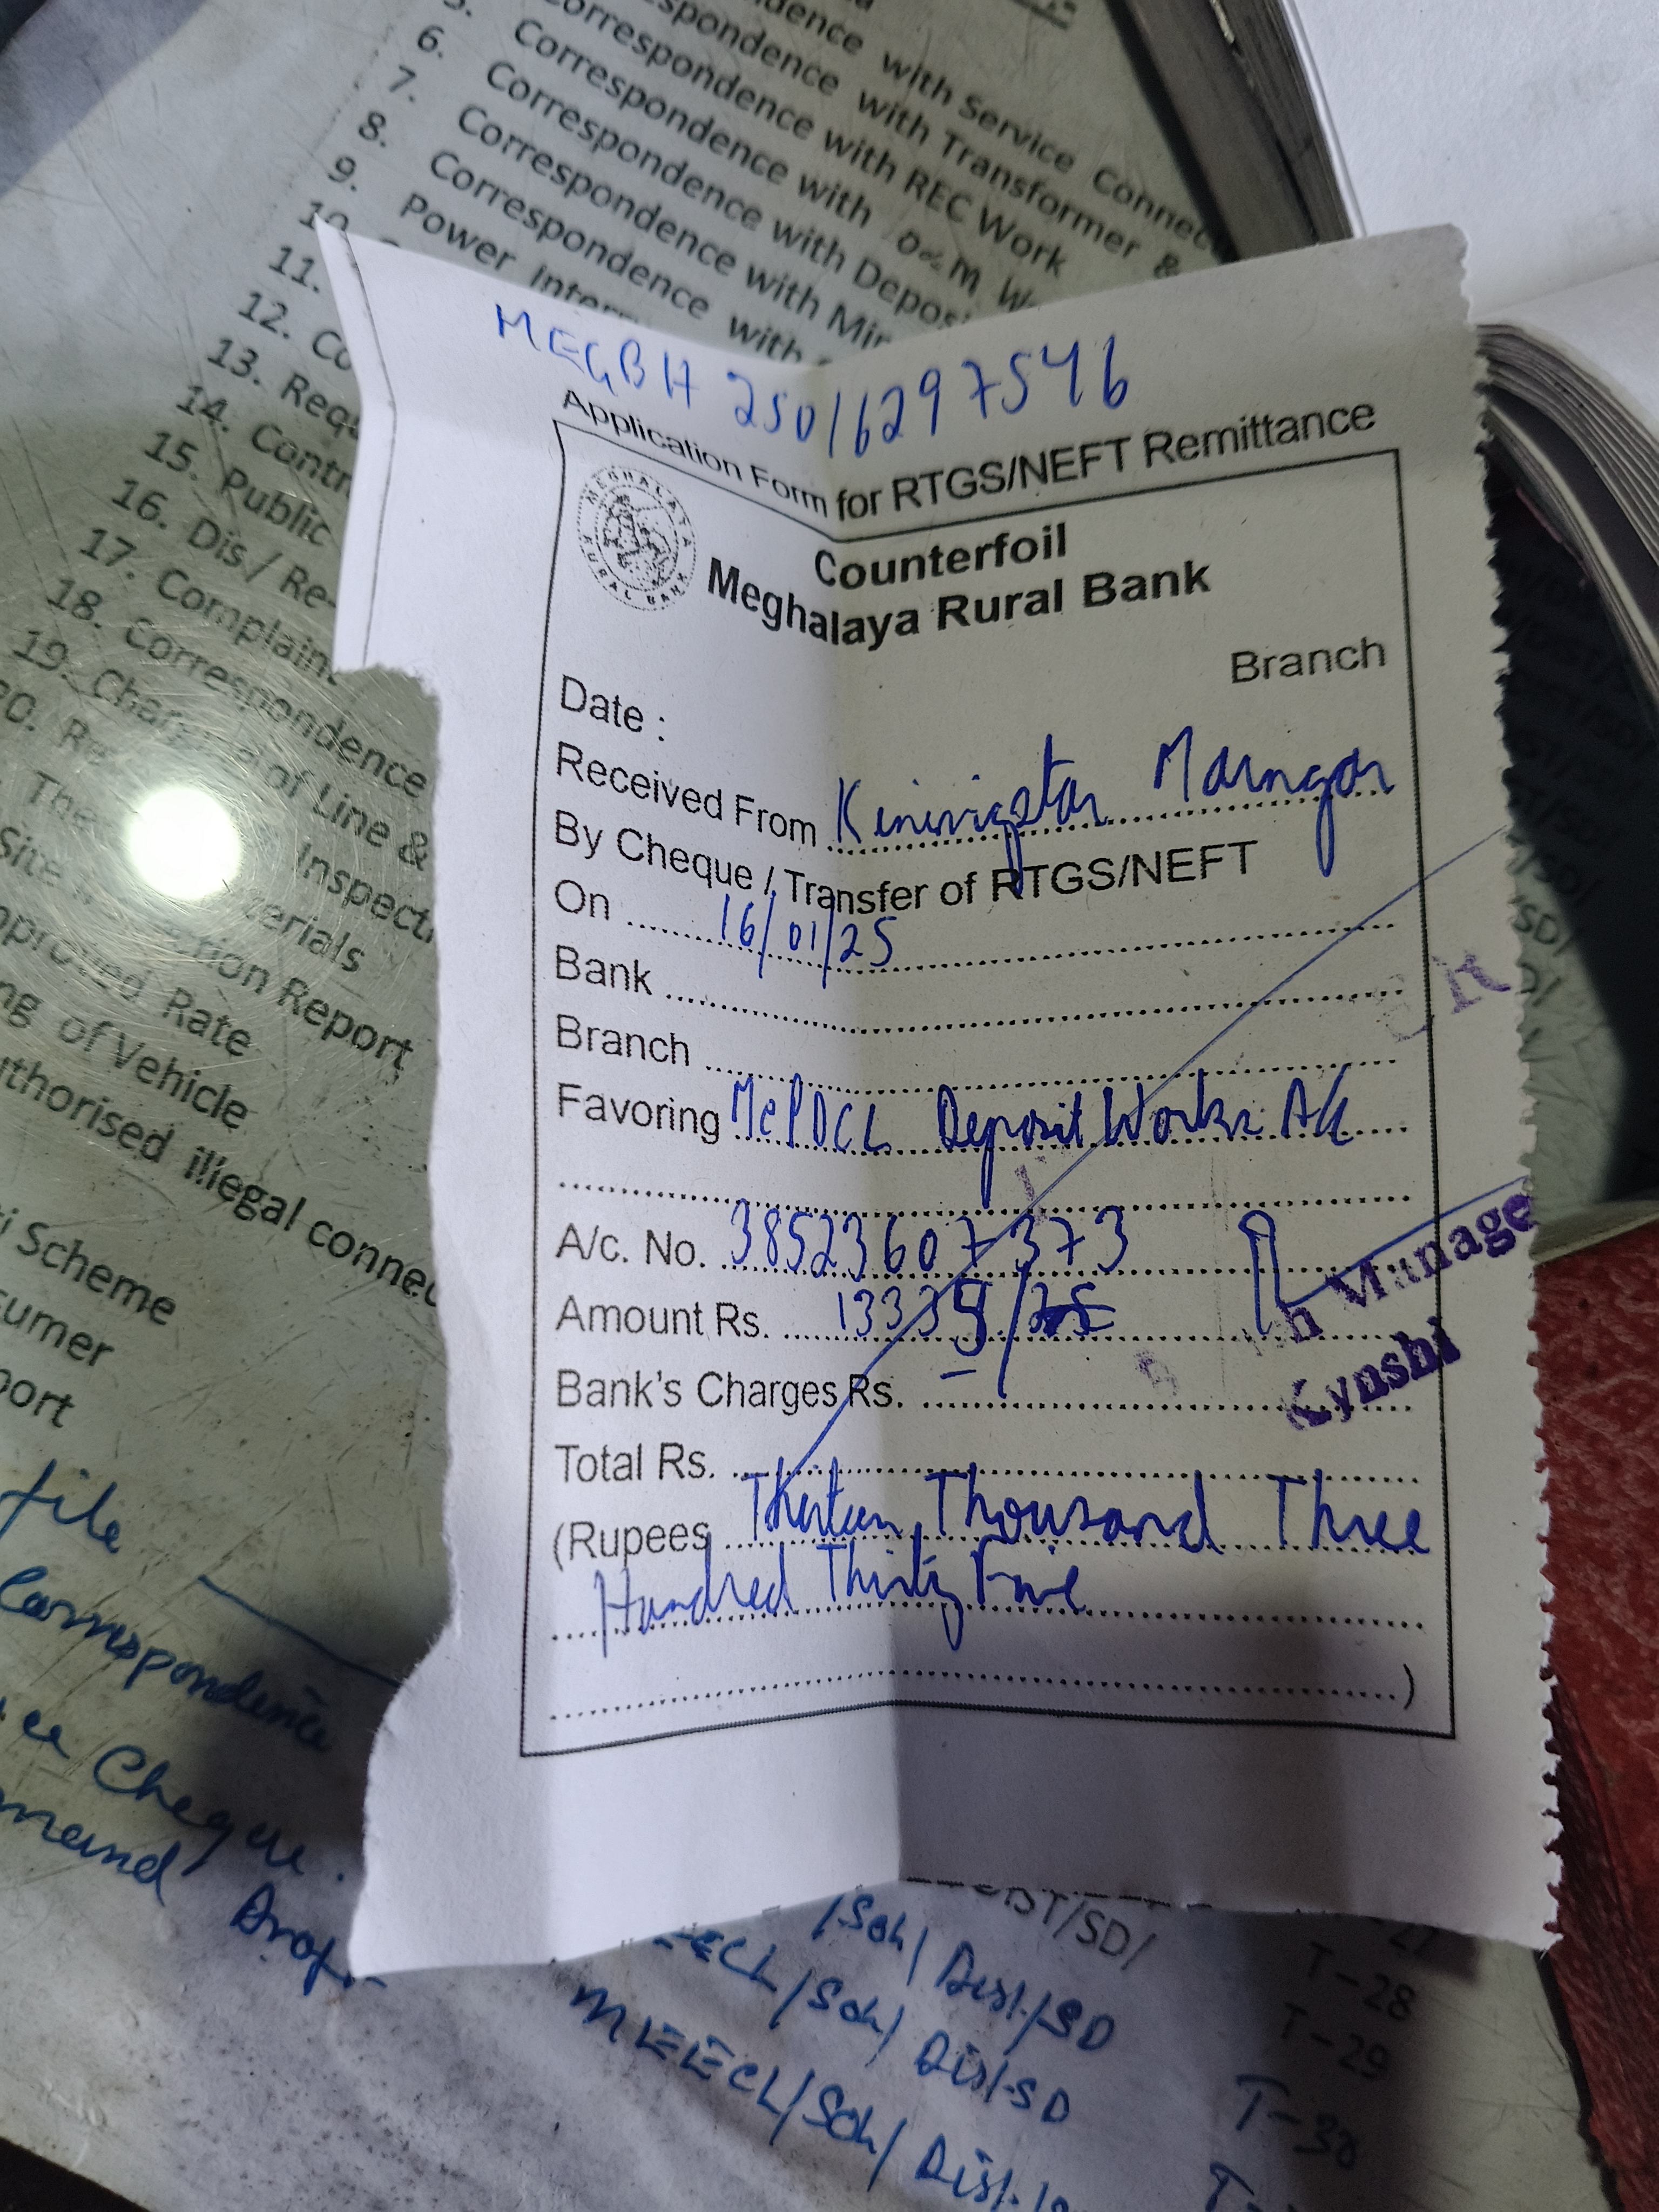 5.
6. Correspondence with Service Connec
7. Correspondence with Transformer &
8. Correspondence with REC Work
9. Correspondence with O&M W
10. Correspondence with Depos
11. Power Inter
12. Co
13. Requ
14. Contr
15. Public
16. Dis / Re-
17. Complaint
18. Correspondence
19.
of Line &
Inspect
erials
tion Report
Rate
ng of Vehicle
uthorised illegal connec
i Scheme
sumer
port
file
Correspondence
Cheque.
mand Draft
MEGBH 25016297546
Application Form for RTGS/NEFT Remittance
MEGHALAYA RURAL BANK
Counterfoil
Meghalaya Rural Bank
Branch
Date :
Received From Marngar
By Cheque / Transfer of RTGS/NEFT
On 16/01/25
Bank
Branch
Favoring MePDCL Deposit Works A/c
A/c. No. 38523607373
Amount Rs. 13335/
Bank's Charges Rs.
Total Rs.
(Rupees Thirteen Thousand Three
Hundred Thirty Five
)
Branch Manage
Kynshi
ST/SD/
/Soh/ Dist/SD
EECL/Soh/ Dist/SD
MEECL/Soh/ Dist/
27
T-28
T-29
T-30